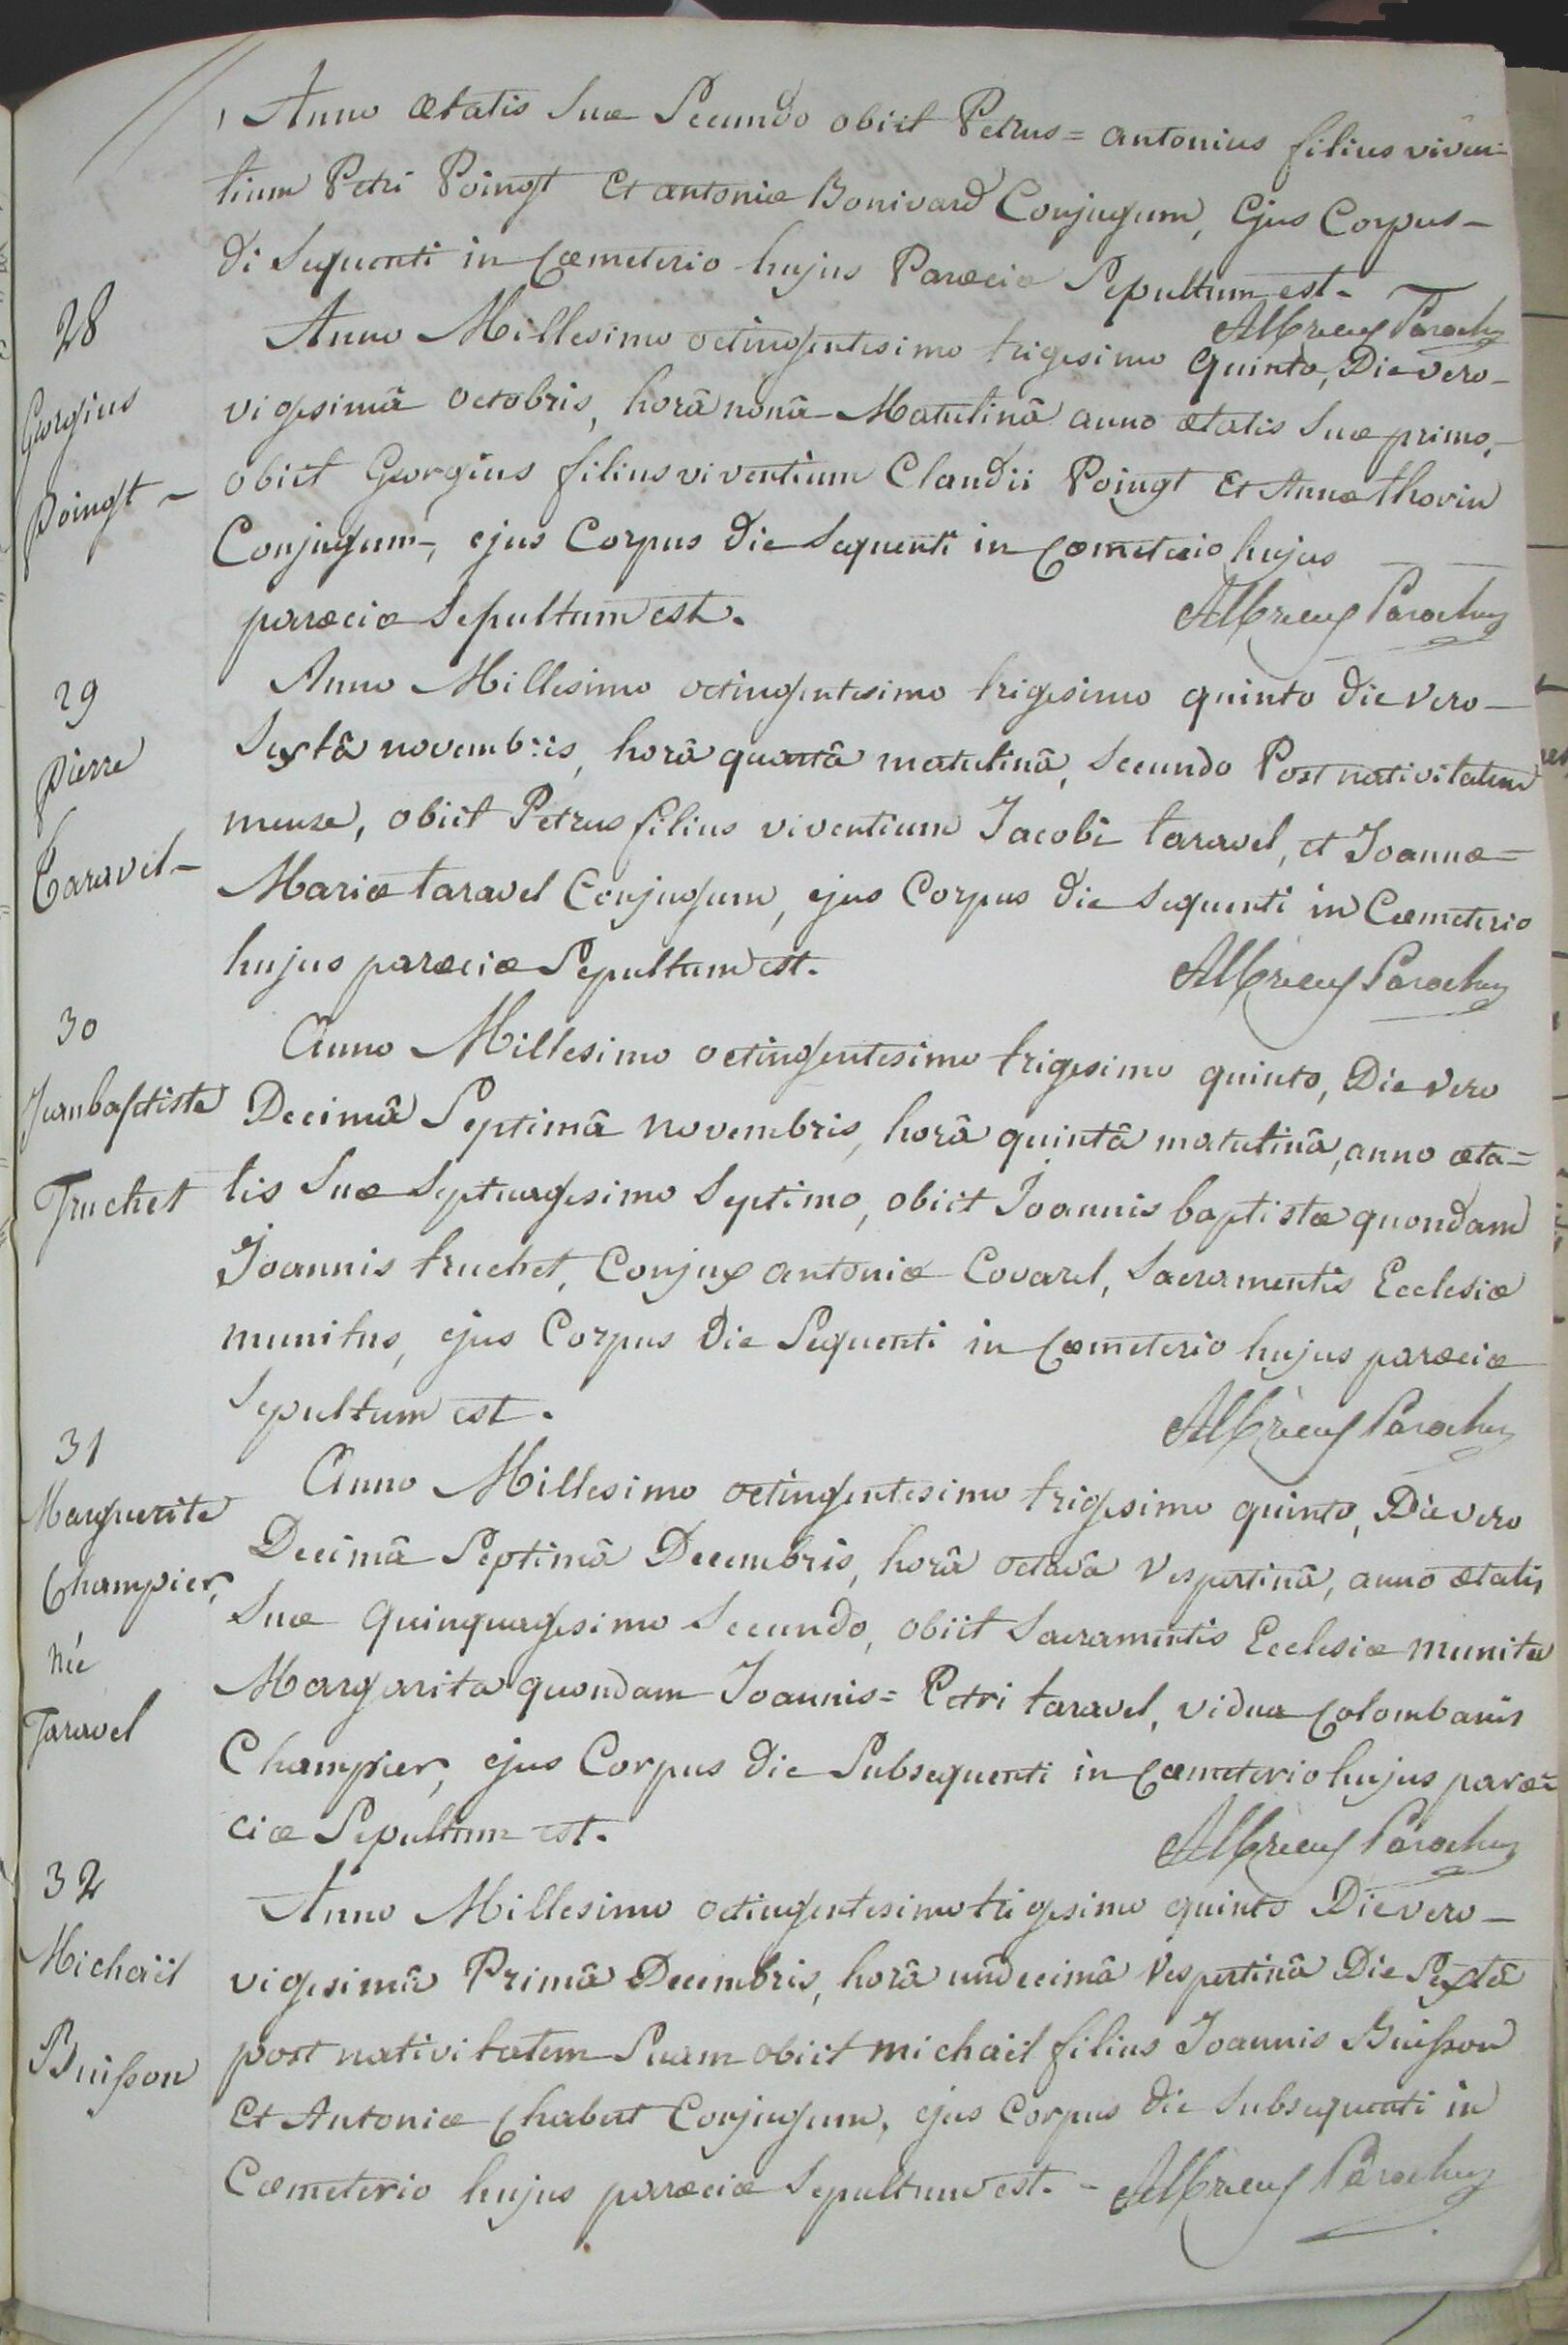 Anno ætatis Suæ Secundo obiit Petrus= antonius filius viven-
tium Petri Poingt Et antoniæ Bonivard Conjugum, Ejus Corpus-
di Sequenti in Cœmeterio hujus Parœciæ Sepultum est.
Parochus
28
Georgius
Poingt -
Anno Millesimo octingentesimo trigesimo Quinto, Die vero-
vigesimâ octobris, horâ nonâ Matutinâ anno ætatis Suæ primo,-
obiit Georgius filius viventium Claudii Poingt Et Annæ thorin
Conjugum-, ejus Corpus die Sequenti in Cœmeterio hujus
parœciæ Sepultum est.
Parochus
29
Pierre
Taravel-
Anno Millesimo octingentesimo trigesimo quinto die vero-
Sextâ novembris, horâ quartâ matutinâ, Secundo Post nativitatem
mense, obiit Petrus filius viventium Jacobi taravel, et Joannæ=
Mariæ taravel Conjugum, ejus Corpus die Sequenti in Cœmeterio
hujus parœciæ Sepultum est.
Parochus
30
Jeanbaptiste
Truchet
Anno Millesimo octingentesimo trigesimo quinto, Die vero
Decimâ Septimâ novembris, horâ quintâ matutinâ, anno æta=
tis Suæ Septuagesimo Septimo, obiit Joannis baptistæ quondam
Joannis truchet, Conjux antoniæ Covarel, Sacramentis Ecclesiæ
munitus, ejus Corpus Die Sequenti in Cœmeterio hujus parœciæ
Sepultum est.
Parochus
31
Marguerite
Champier,
née
Taravel
Anno Millesimo octingentesimo trigesimo quinto, Die vero
Decimâ Septimâ Decembris, horâ octavâ Vespertinâ, anno ætatis
Suæ Quinquagesimo Secundo, obiit Sacramentis Ecclesiæ munita
Margarita quondam Joannis= Petri taravel, vidua Colombanis
Champier, ejus Corpus die Subsequenti in Cœmeterio hujus parœ=
ciæ Sepultum est.
Parochus
32
Michaël
Buisson
Anno Millesimo octingentesimo trigesimo quinto Die vero-
vigesimâ Primâ Decembris, horâ undecimâ Vespertinâ Die Sextâ
post nativitatem Suam obiit michaël filius Joannis Buisson
Et Antoniæ Chabert Conjugum, ejus Corpus die Subsequenti in
Cœmeterio hujus parœciæ Sepultum est. - Parochus